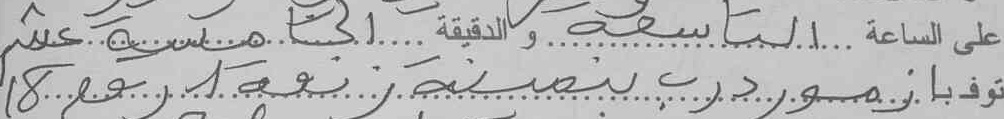 على الساعة ... التاسعة ... و الدقيقة ... الخامسة عشر
توفي بازمور درب بنصينة زنقة 1 رقم 18